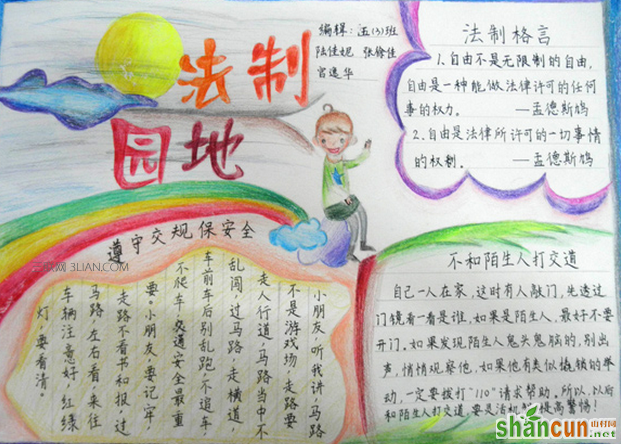 法制
园地
编辑：五(3)班
陆佳妮 张 佳
宫逸华
法制格言
1.自由不是无限制的自由，
自由是一种能做法律许可的任何
事的权力。 —孟德斯鸠
2.自由是法律所许可的一切事情
的权利。 —孟德斯鸠
遵守交规保安全
小朋友，听我讲，马路
不是游戏场，走路要
走人行道，马路当中不
乱闯，过马路，走横道
车前车后别乱跑，不追车，
不爬车交通安全最重
要。小朋友，要记牢
走路不看书和报，过
马路，左右看，来往
车辆注意好，红绿
灯，要看清。
不和陌生人打交道
自己一人在家，这时有人敲门，先透过
门镜看一看是谁，如果是陌生人，最好不要
开门。如果发现陌生人鬼头鬼脑的，别出
声，悄悄观察他，如果他有类似撬锁的举
动，一定要拨打"110"请求帮助。所以，以后
和陌生人打交道，要灵活机 提高警惕！
3LIAN.COM
shancun
山村网
.net